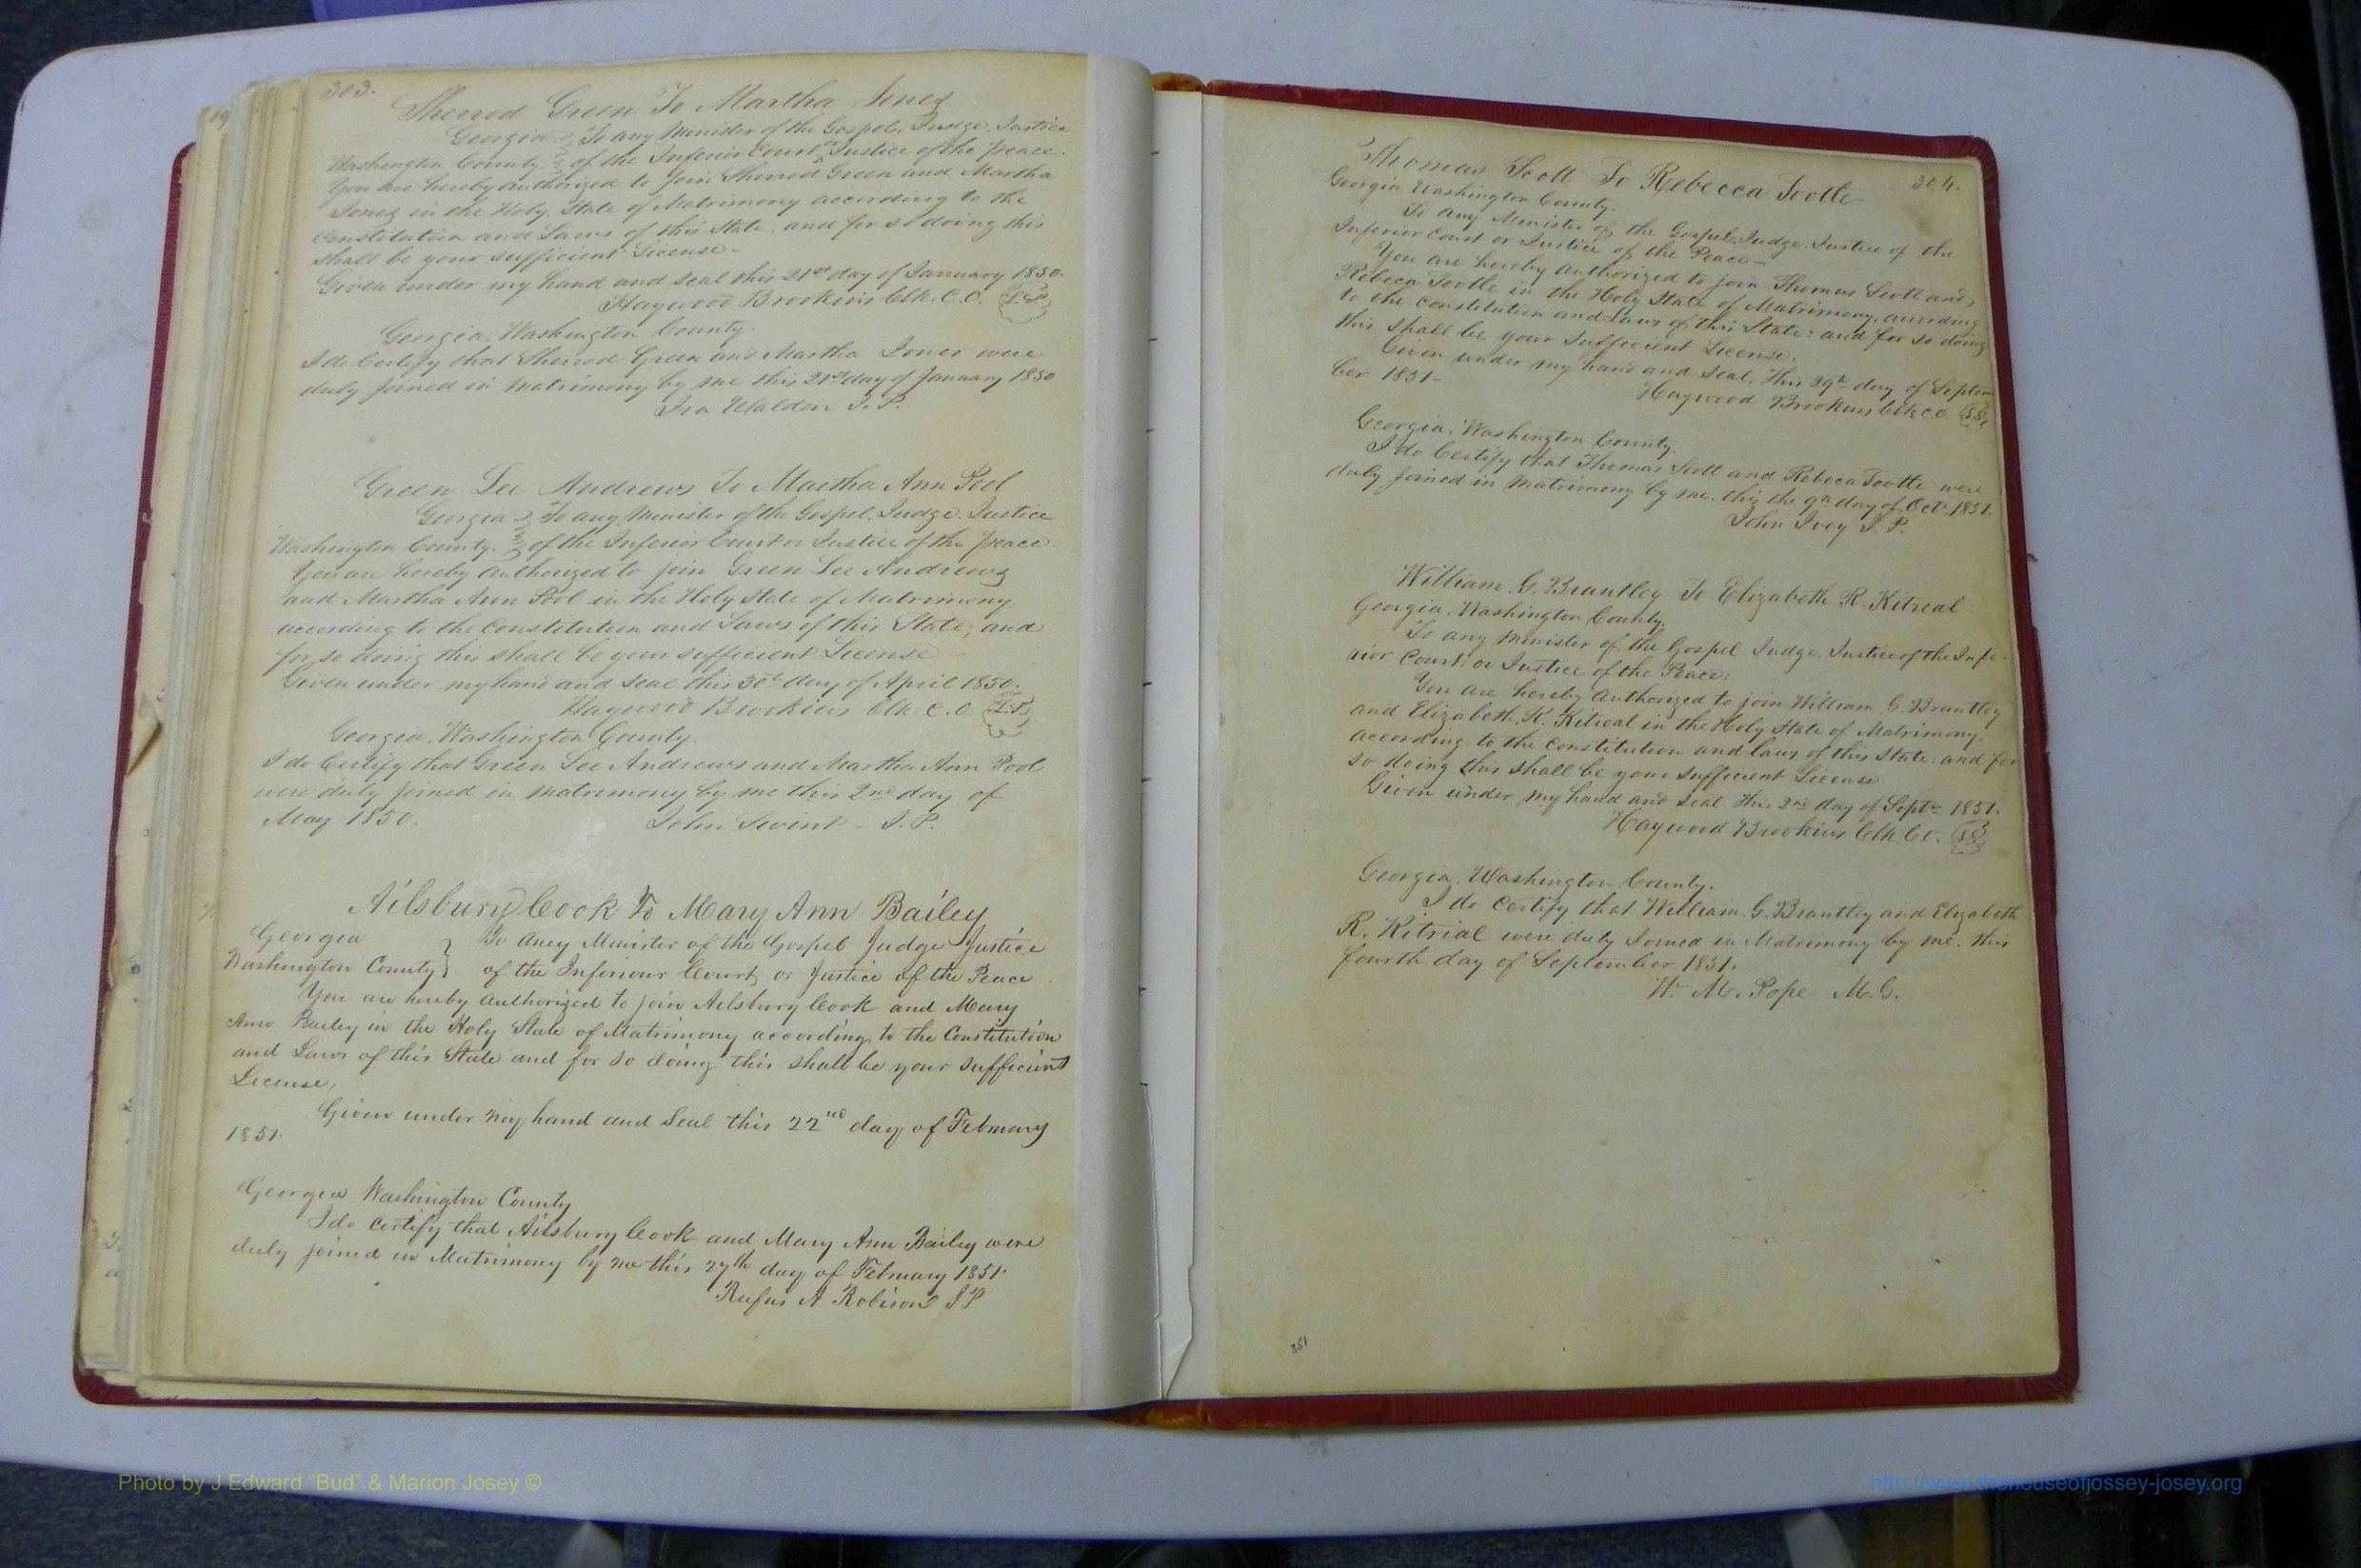 303.
Sherrod Green To Martha Jones
Georgia } To any Minister of the Gospel, Judge, Justice
Washington County. } of the Inferior Court or Justice of the Peace.
You are hereby authorized to join Sherrod Green and Martha
Jones in the Holy State of Matrimony according to the
Constitution and Laws of this State, and for so doing this
shall be your sufficient License-
Given under my hand and seal this 21st day of January 1850.
Haywood Brookins Clk. C.O. L.S.
Georgia, Washington County.
I do Certify that Sherrod Green and Martha Jones were
duly joined in matrimony by me this 21st day of January 1850
Ira Walden J.P.
Green Lee Andrews To Martha Ann Pool
Georgia } To any Minister of the Gospel, Judge, Justice
Washington County. } of the Inferior Court or Justice of the Peace.
You are hereby Authorized to join Green Lee Andrews
and Martha Ann Pool in the Holy State of Matrimony
according to the Constitution and Laws of this State; and
for so doing this shall be your sufficient License-
Given under my hand and seal this 30th day of April 1850.
Haywood Brookins Clk. C.O. L.S.
Georgia, Washington County.
I do Certify that Green Lee Andrews and Martha Ann Pool
were duly joined in matrimony by me this 2nd day of
May 1850. John Swint - J.P.
Ailsbury Cook To Mary Ann Bailey
Georgia } To Aney Minister of the Gospel Judge Justice
Washington County } of the Inferiour Court or Justice of the Peace
You are hereby authorized to join Ailsbury Cook and Mary
Ann Bailey in the Holy State of Matrimony according to the Constitution
and Laws of this State and for so doing this shall be your sufficient
License,
Given under my hand and Seal this 22nd day of February
1851.
Georgia Washington County
I do certify that Ailsbury Cook and Mary Ann Bailey were
duly joined in Matrimony by me this 27th day of February 1851.
Rufus A Robison JP
304.
Thomas Scott To Rebecca Tootle
Georgia Washington County.
To any Minister of the Gospel, Judge, Justice of the
Inferior Court or Justice of the Peace-
You are hereby authorized to join Thomas Scott and
Rebeca Tootle in the Holy State of Matrimony, according
to the Constitution and Laws of this State: and for so doing
this shall be your sufficient License.
Given under my hand and seal, this 29th day of Septem
ber 1851-
Haywood Brookins Clk C.O. L.S.
Georgia, Washington County.
I do Certify that Thomas Scott and Rebeca Tootle were
duly joined in matrimony by me, this the 9th day of Oct. 1851.
John Ivey J.P.
William G. Brantley To Elizabeth R. Kitreal
Georgia, Washington County.
To any Minister of the Gospel Judge, Justice of the Infe-
rior Court, or Justice of the Peace:
You are hereby authorized to join William G. Brantley
and Elizabeth R. Kitreal in the Holy State of Matrimony,
according to the Constitution and laws of this State: and for
so doing this shall be your sufficient License.
Given under my hand and seal this 2nd day of Septr 1851.
Haywood Brookins Clk Ct. L.S.
Georgia, Washington County.
I do Certify that William G. Brantley and Elizabeth
R. Kitrial were duly Joined in Matrimony by me, this
fourth day of September 1851.
W. M. Pope M.G.
351
Photo by J Edward “Bud” & Marion Josey ©
http://www.thehouseofjossey-josey.org